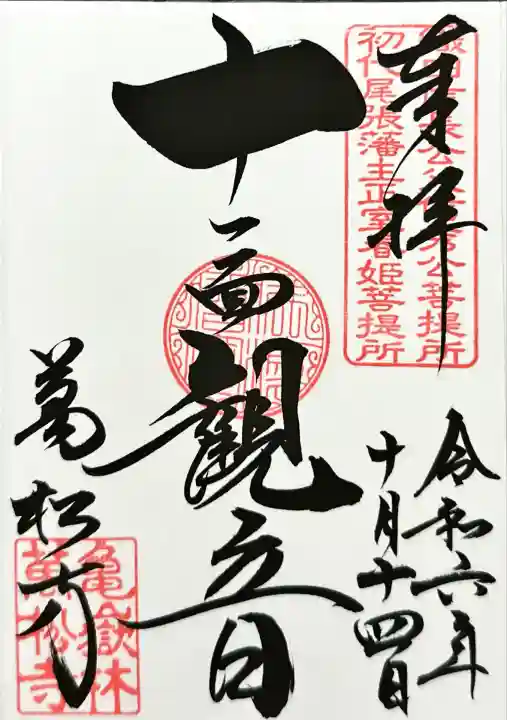 奉拝
織田信長公父信秀公菩提所
初代尾張藩主正室春姫菩提所
令和六年
十月十四日
十一面觀音
萬松寺
亀嶽林
萬松寺